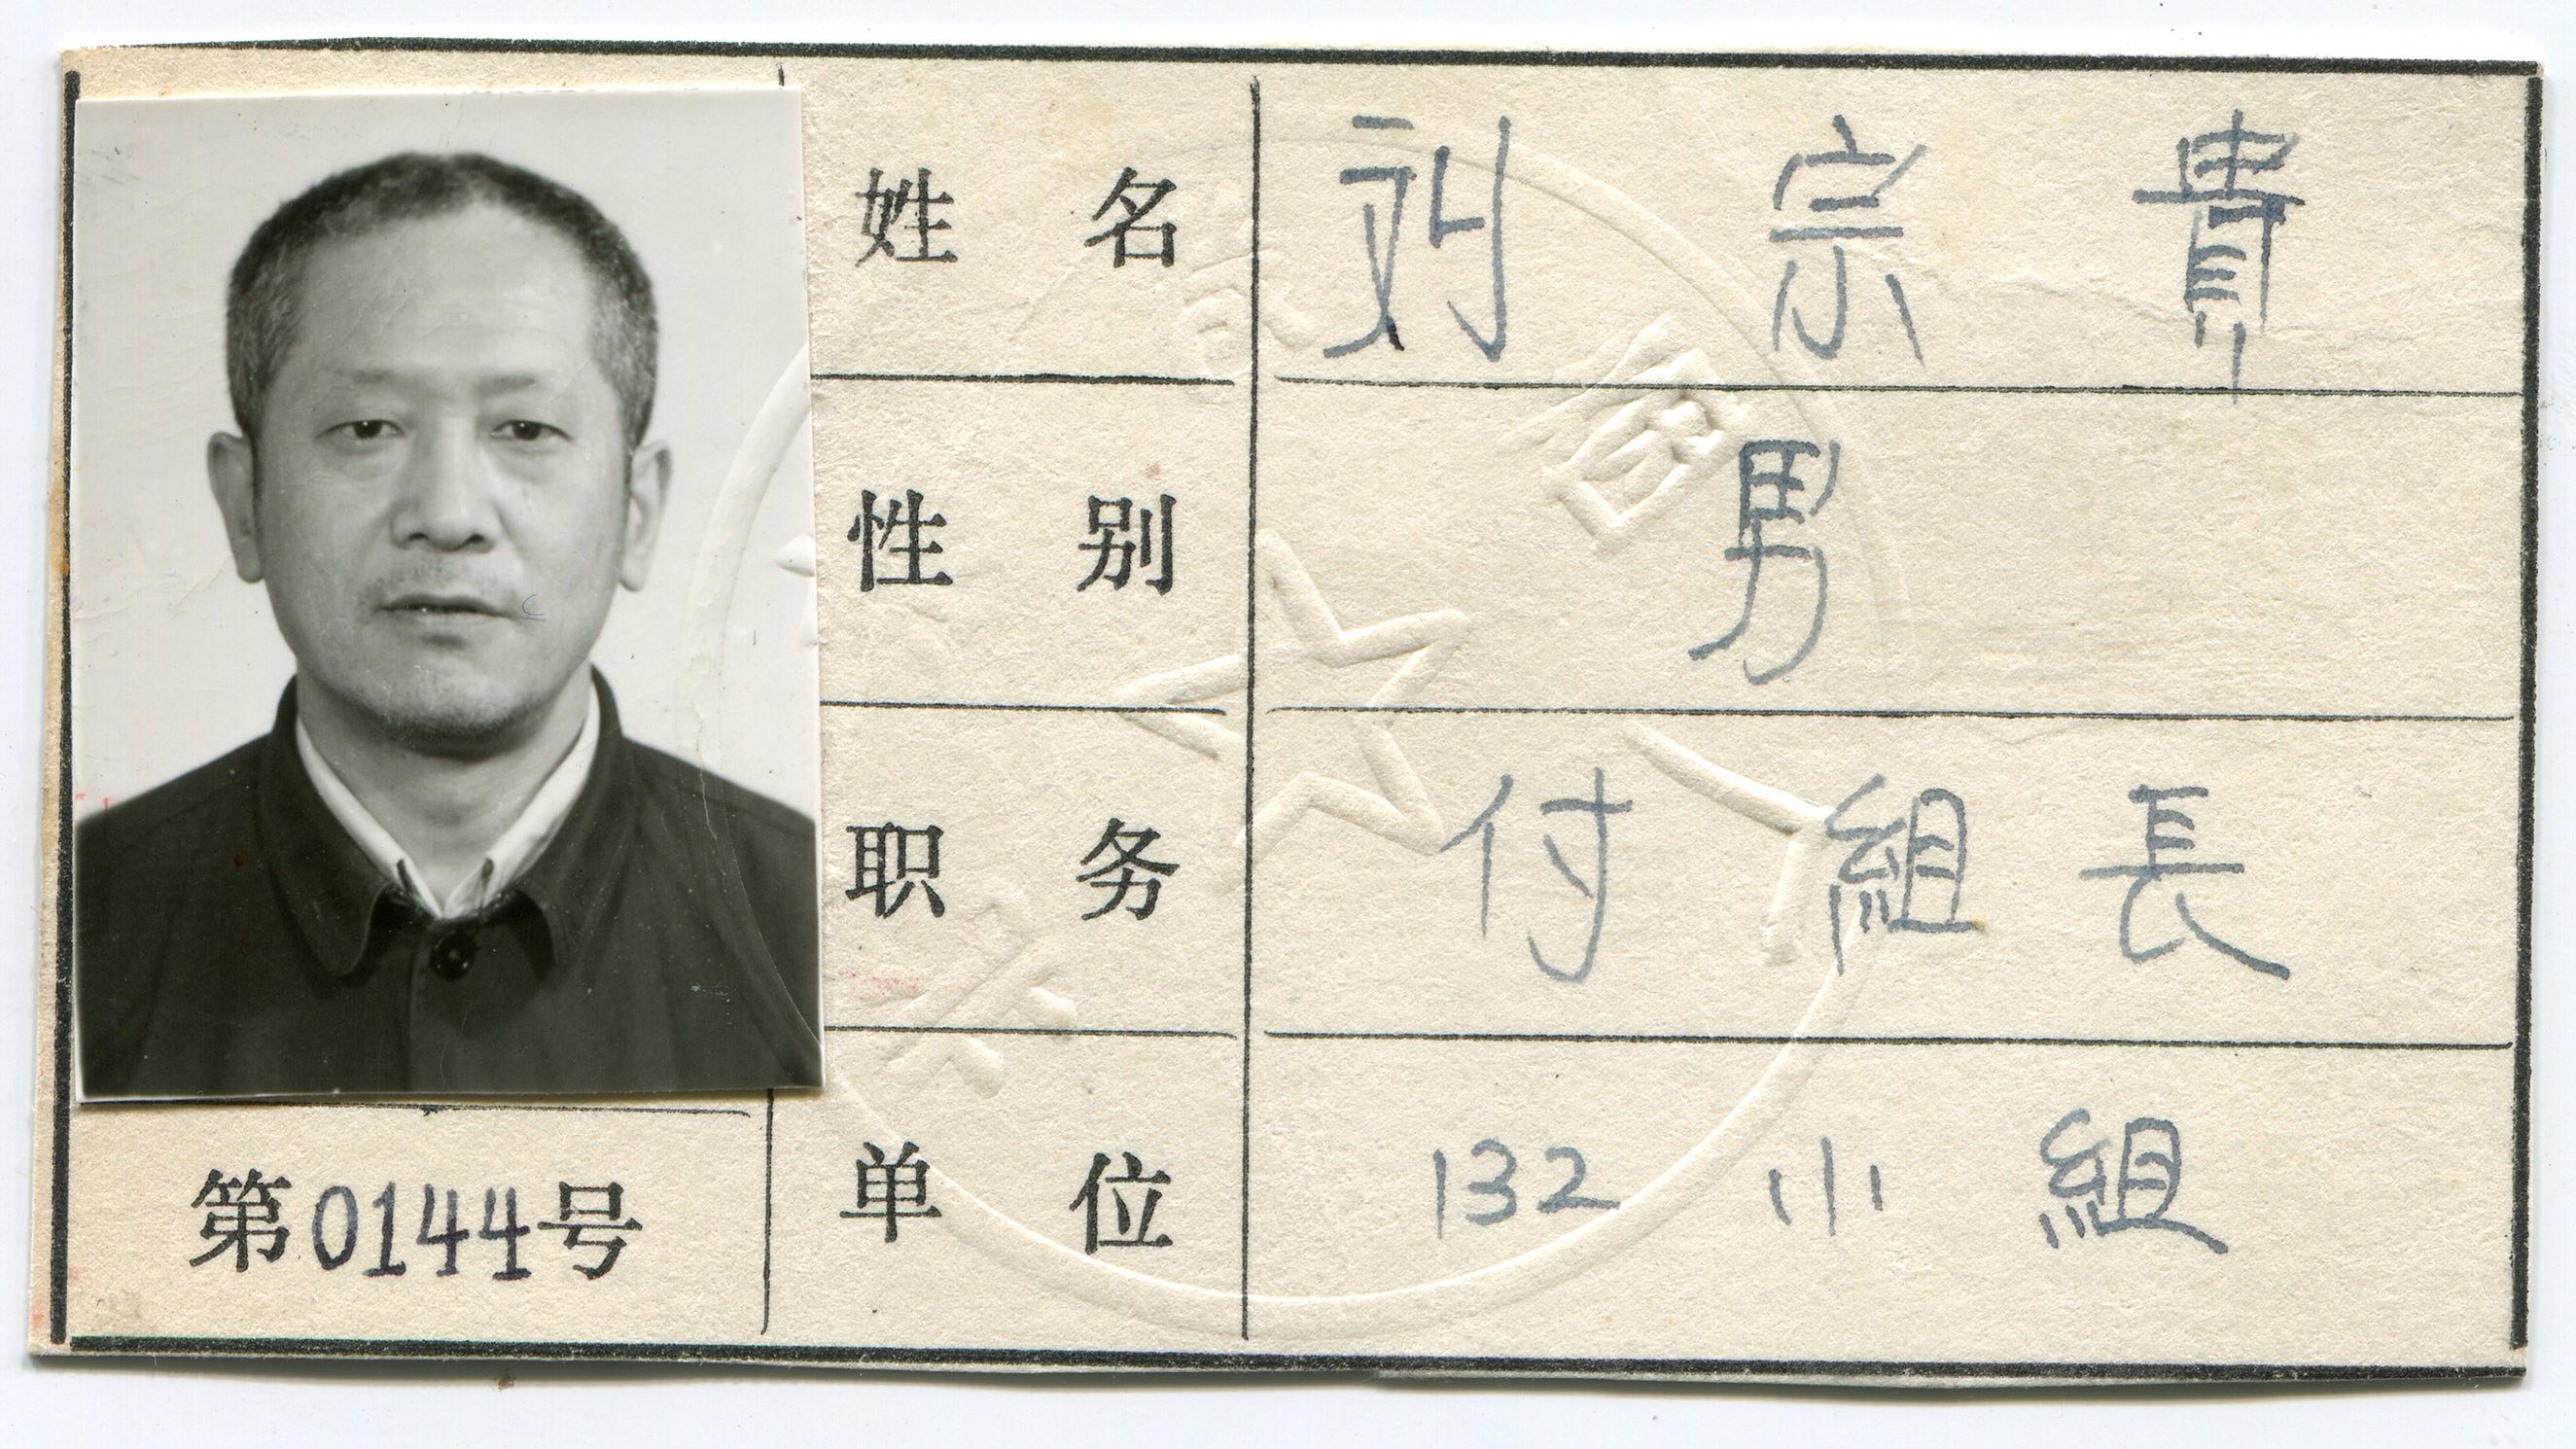 姓名 刘宗貴
性别 男
职务 付組長
单位 132小組
第0144号